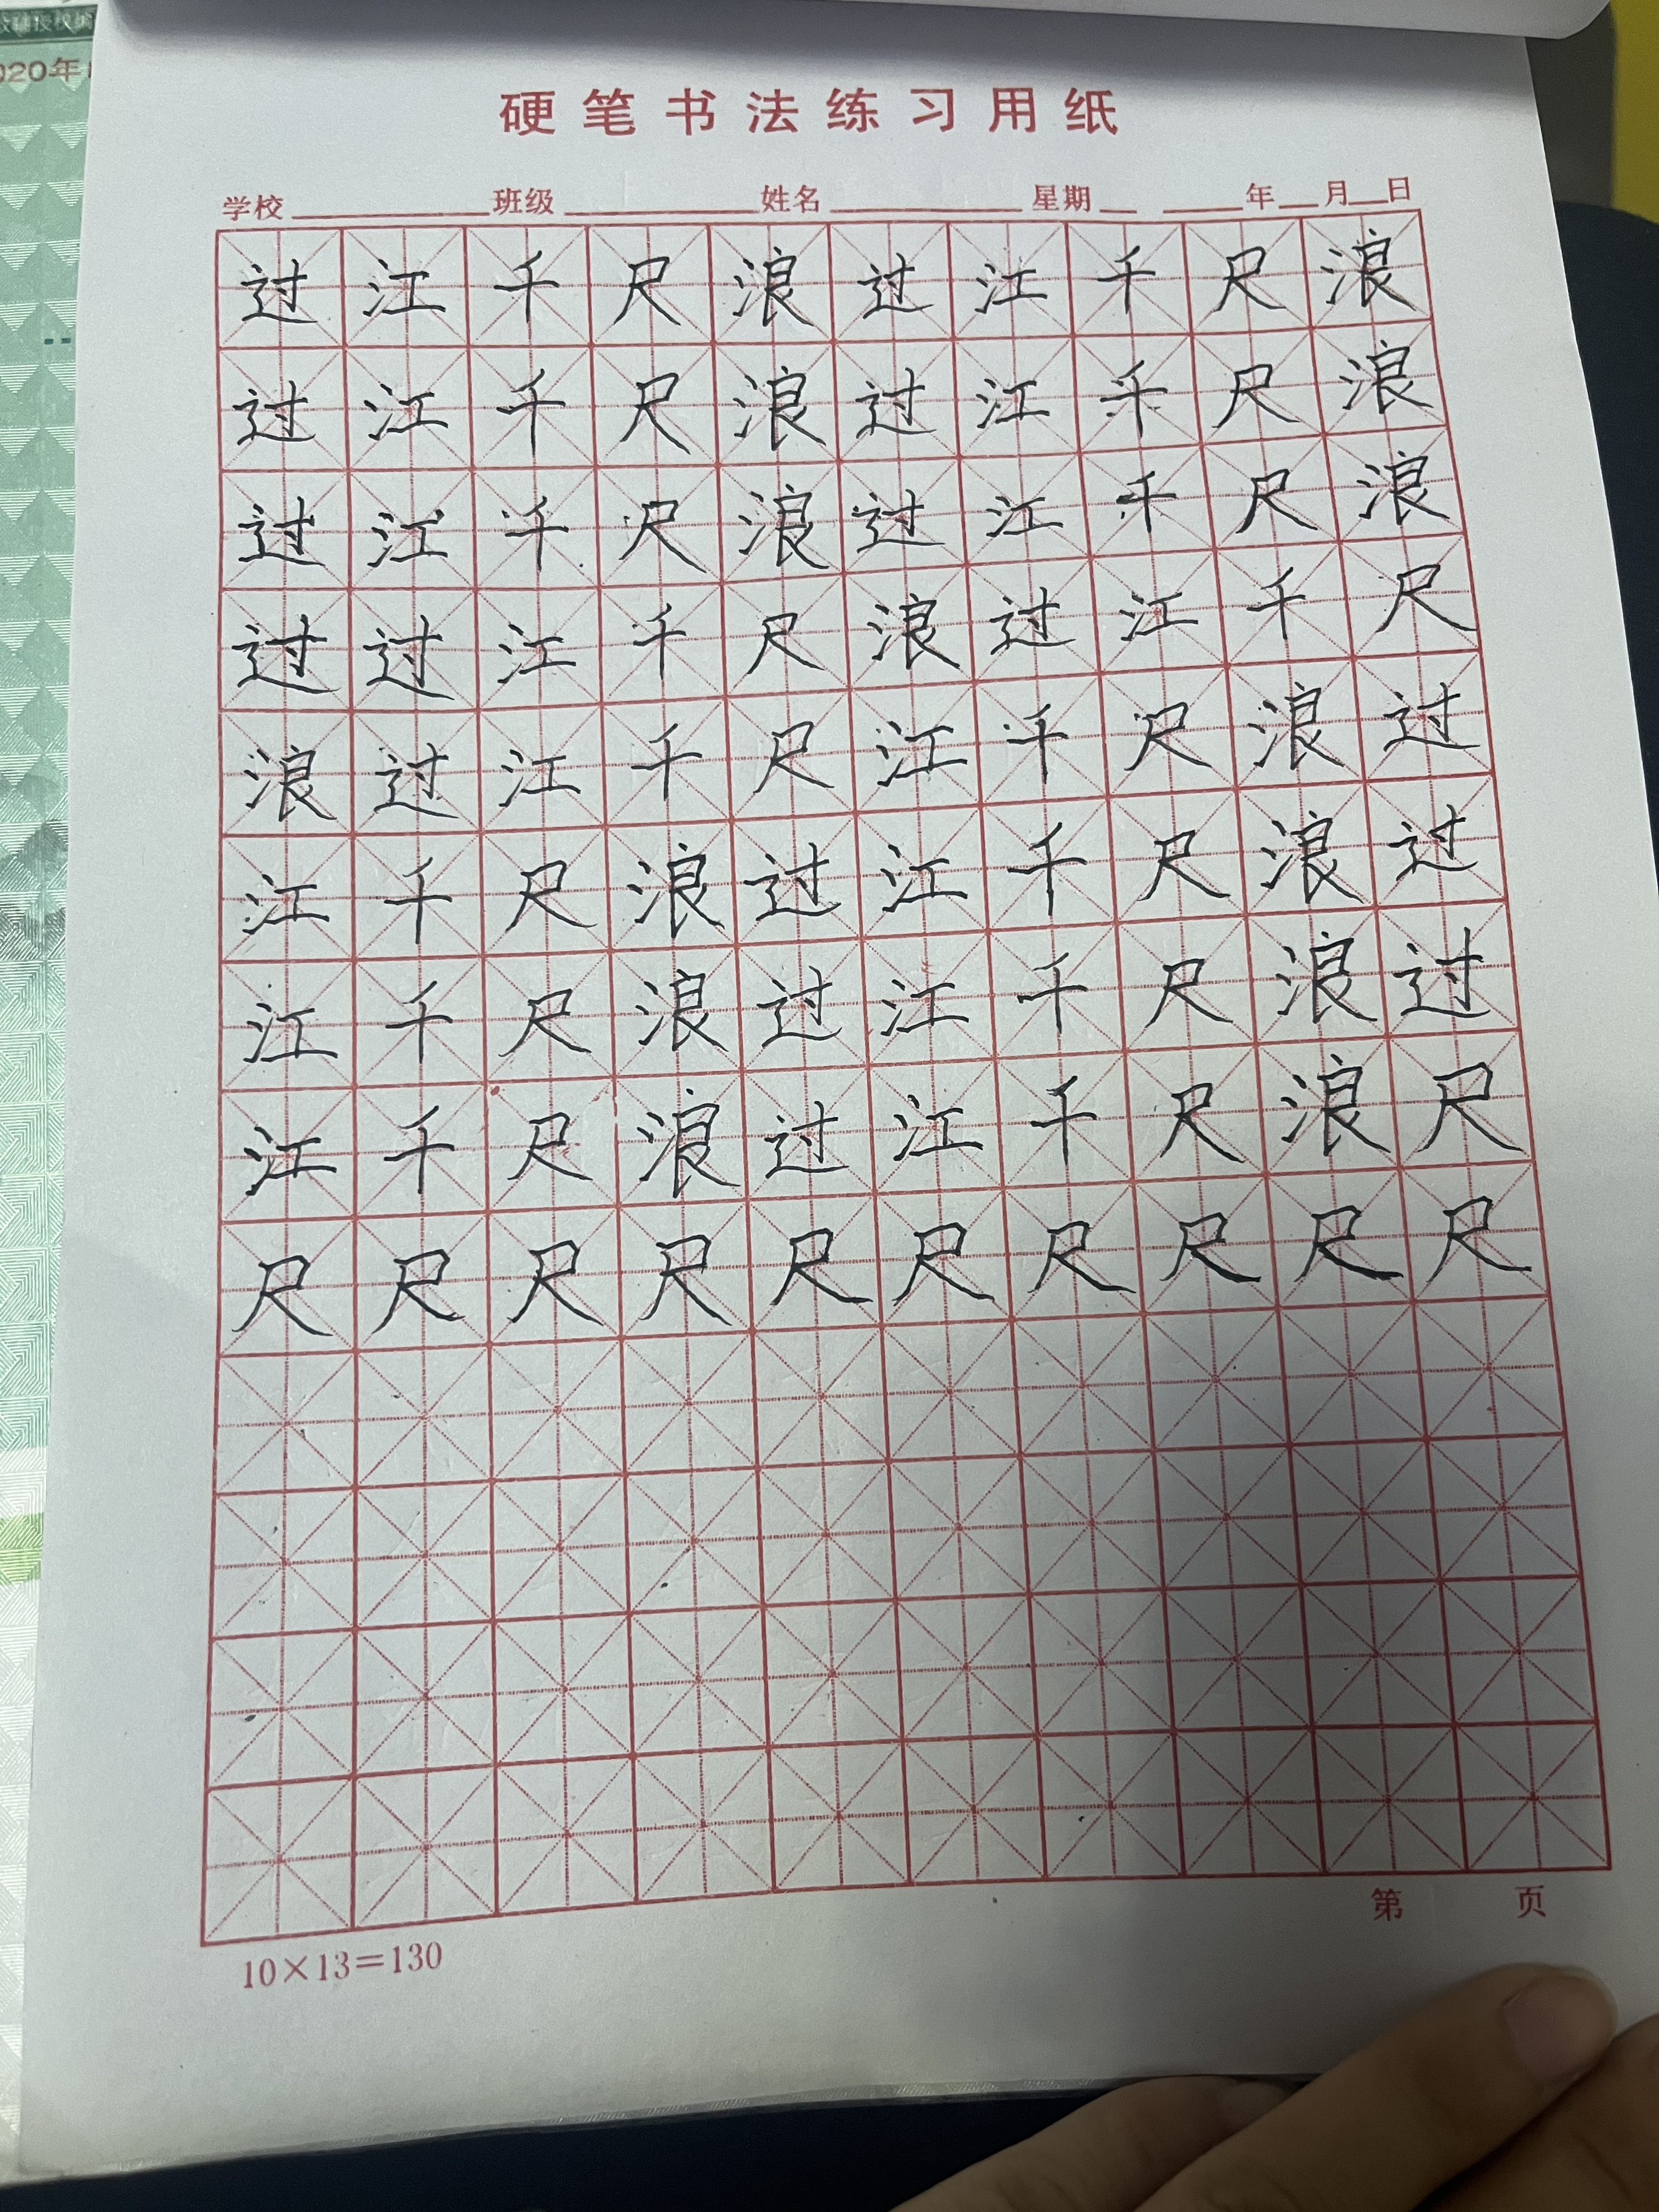 020年
硬笔书法练习用纸
学校 班级 姓名 星期 年 月 日
过江千尺浪过江千尺浪
过江千尺浪过江千尺浪
过江千尺浪过江千尺浪
过过江千尺浪过江千尺
浪过江千尺江千尺浪过
江千尺浪过江千尺浪过
江千尺浪过江千尺浪过
江千尺浪过江千尺浪尺
尺尺尺尺尺尺尺尺尺尺
第 页
10×13=130